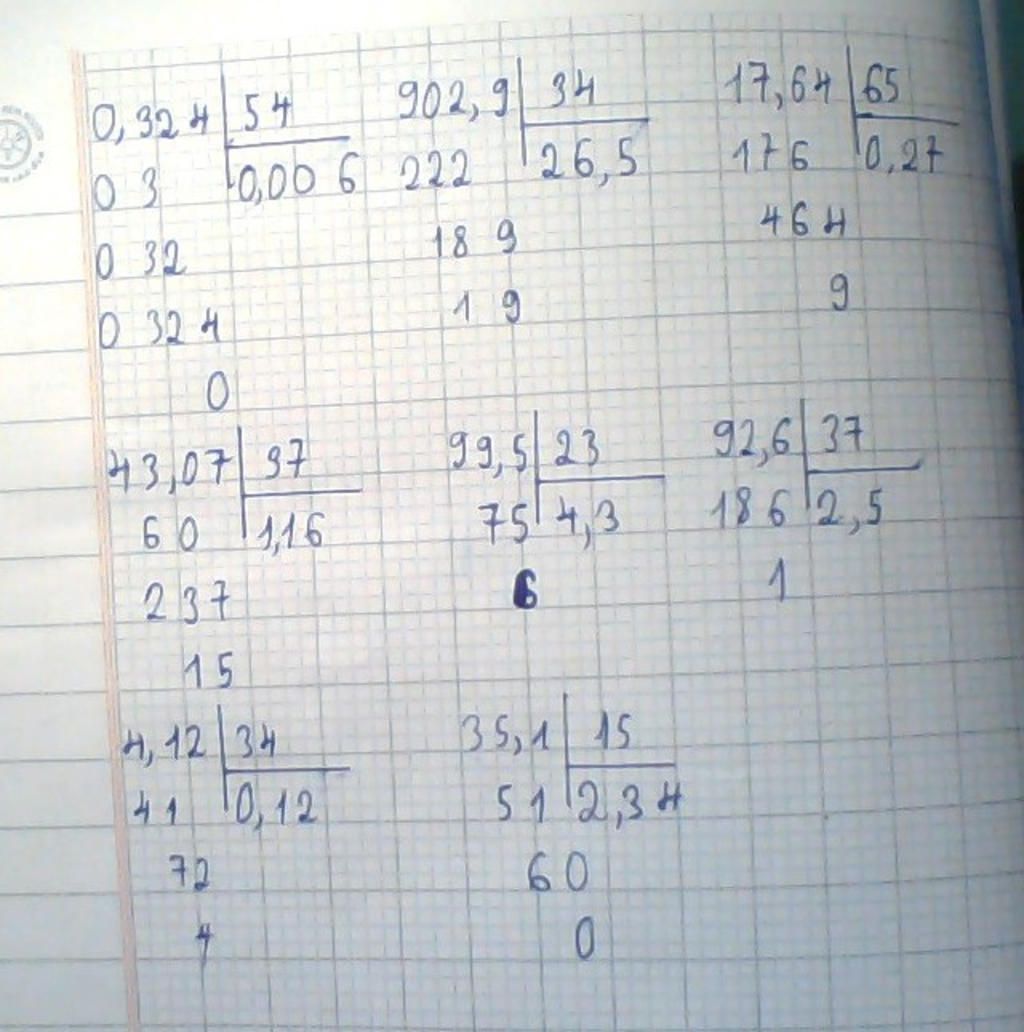 0,324 54 902,9 34 17,64 65
0 3 0,006 222 26,5 176 0,27
0 32 18 9 464
0 324 1 9 9
0
43,07 37 99,5 23 92,6 37
60 1,16 75 4,3 186 2,5
237 6 1
15
4,12 34 35,1 15
41 0,12 51 2,34
72 60
4 0